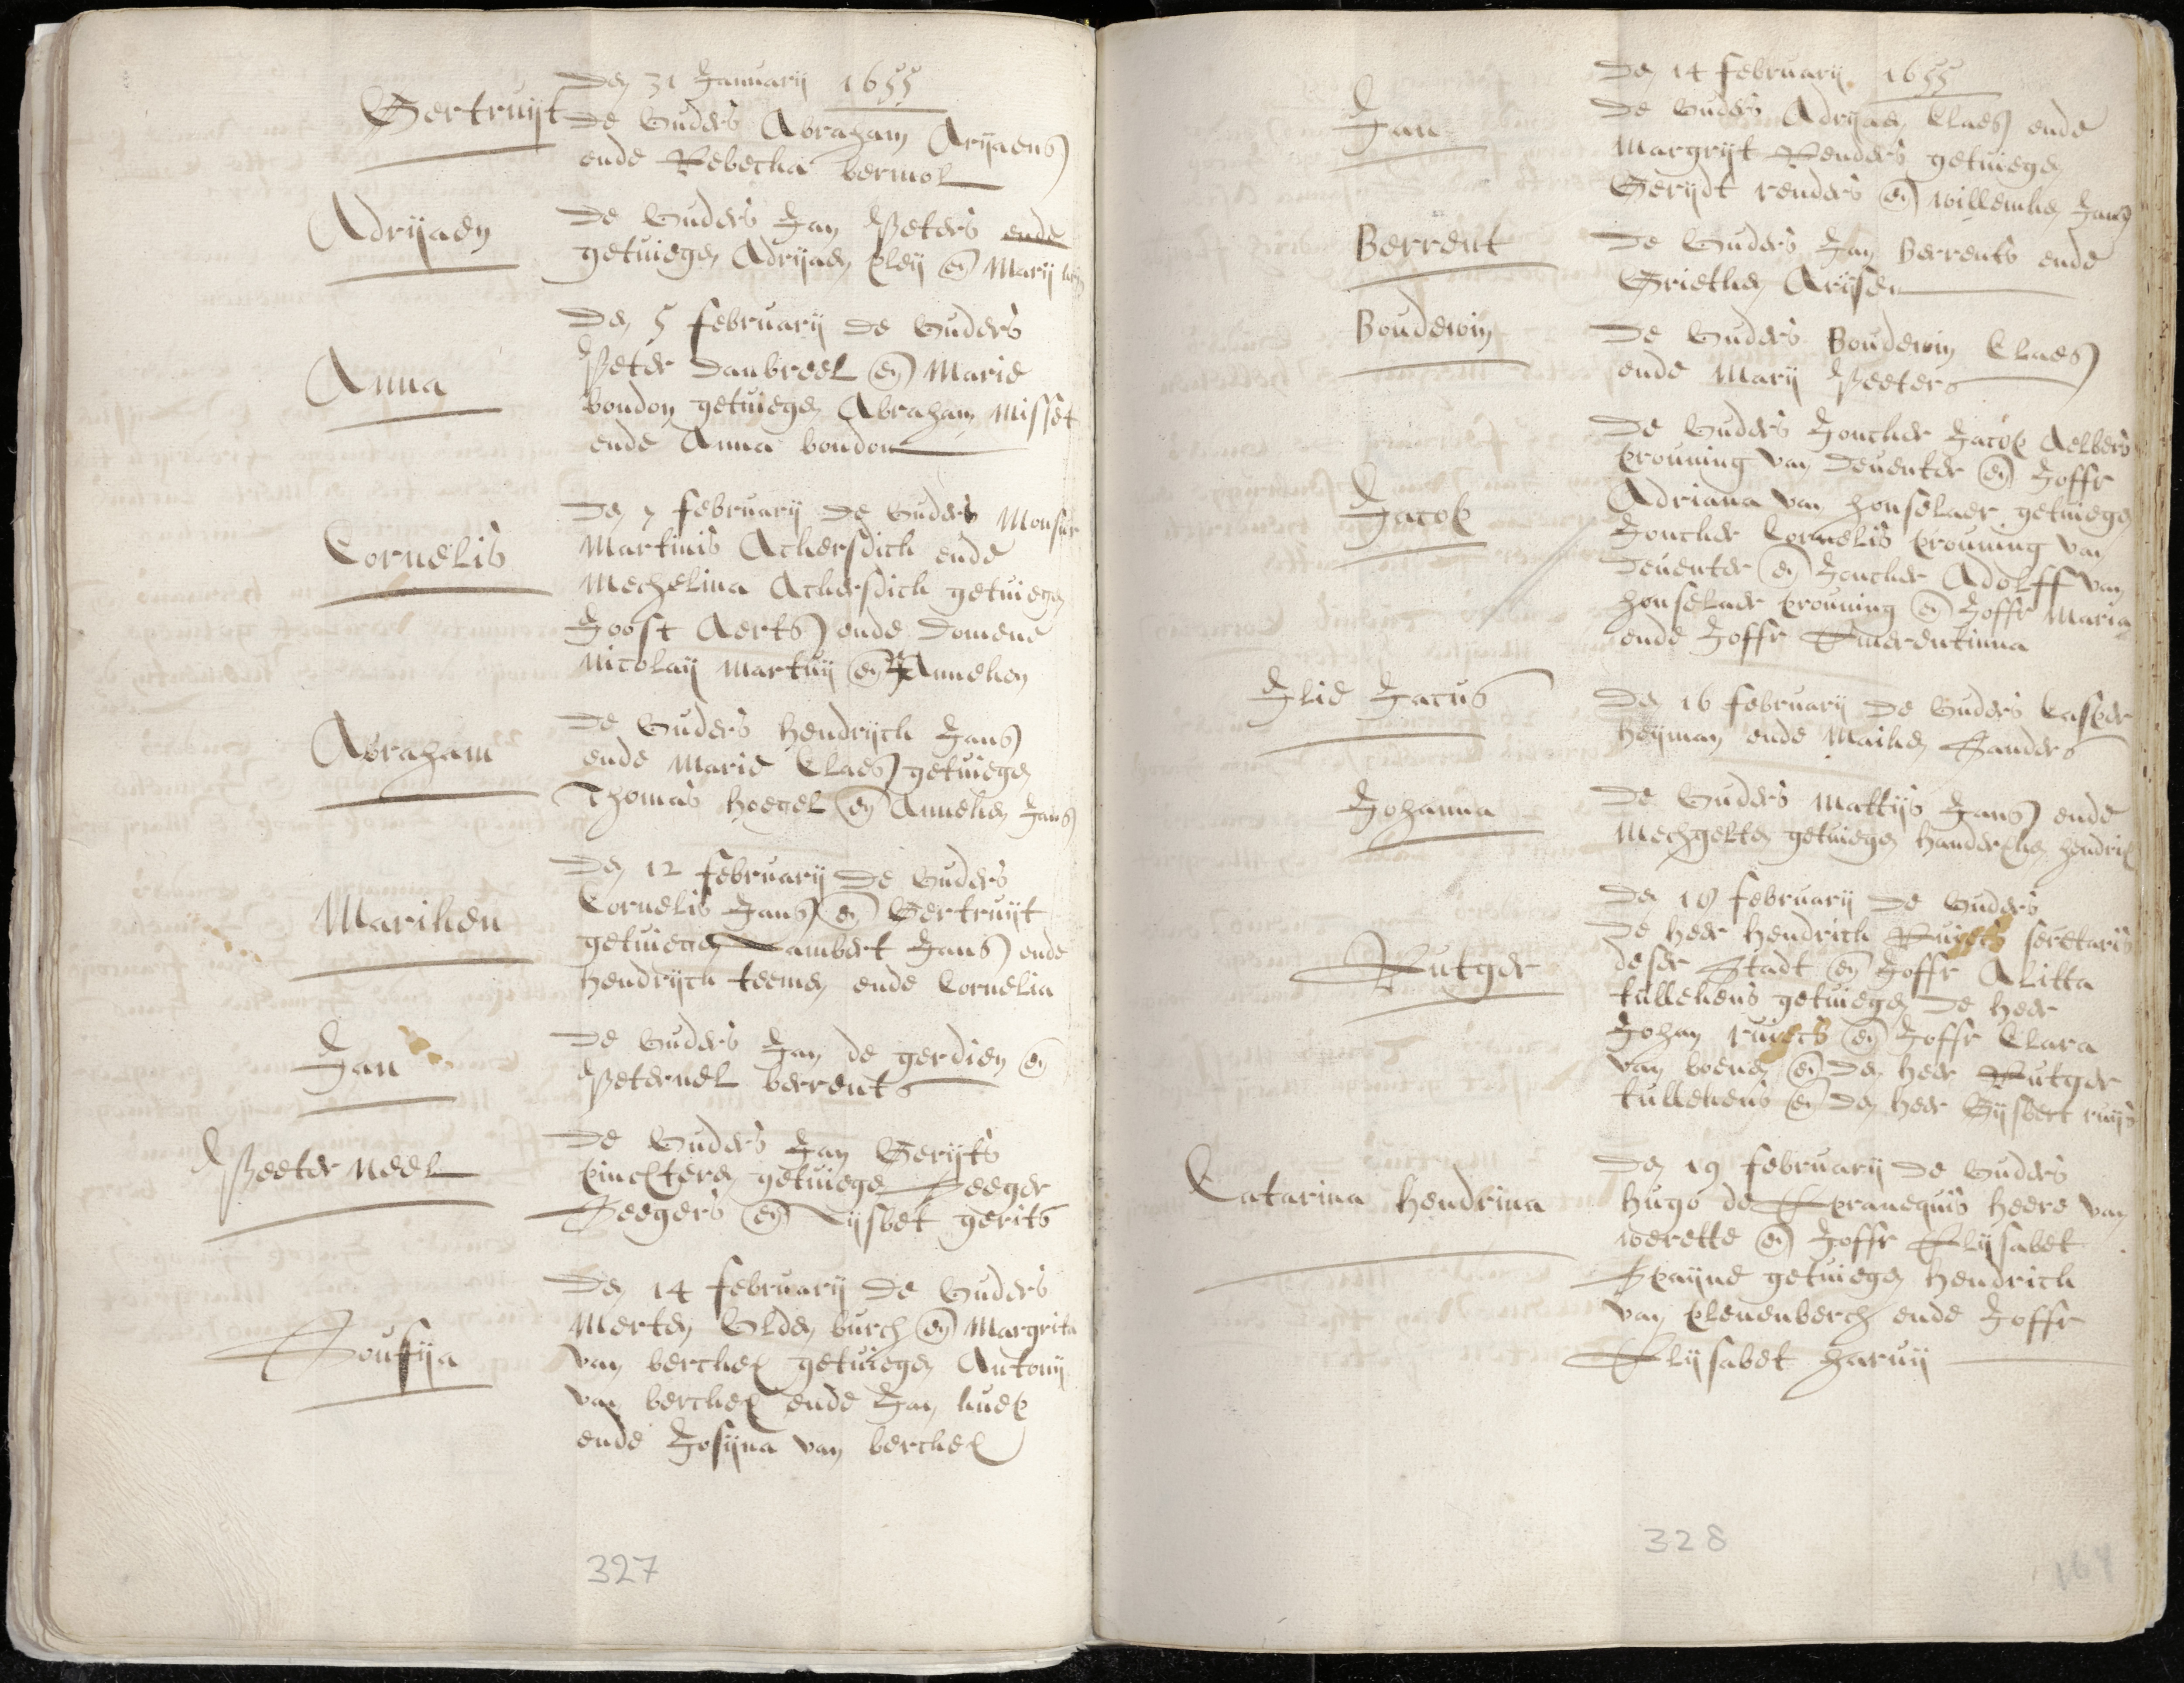 Den 31 Januarij 1655
Gertruijt De Ouders Abraham Arijaens
ende Rebecka bermol
Adrijaen De Ouders Jan Peters ende
getuiegen Adrijaen pleij en Marij
Den 5 februarij De Ouders
Anna Peter danbreel en Marie
boudon getuiegen Abraham Misset
ende Anna boudon
Den 7 februarij De Ouders Monsr
Cornelis Martinis Ackersdick ende
Mechelina Ackersdick getuiegen
Joost Aerts ende Domene
Nicolaij Martinij en Anneken
Abraham De Ouders Hendrijck Jans
ende Marie Claes getuiegen
Thomas hoegel en Anneken Jans
Den 12 februarij De Ouders
Mariken Cornelis Jans en Gertruijt
getuiegen Lambert Jans ende
Hendrijck teemen ende Cornelia
Jan De Ouders Jan de gerdien en
Peternel berrents
Peeterneel De Ouders Jan Gerijts
pinxteren getuiegen Seeger
Seegers en Lijsbet gerits
Den 14 februarij De Ouders
Sousija Merten Olden burch en Margrita
van berchem getuiegen Antonij
van berchem ende Jan
ende Josijna van berchem
327
Den 14 februarij 1655
Jan De Ouders Adrijaen Claes ende
Margrijt Renders getuiegen
Gerijdt renders en willemken Jans
Berrent De Ouders Jan Berrents ende
Grietken Arijsen
Boudewin De Ouders Boudewin Claes
ende Marij Peeters
De Ouders Joncker Jacob Aelbers
prouning van Deuenter en Joffr
Jacob Adriana van honselaer getuiegen
Joncker Cornelis prouning van
Deuenter en Joncker Adolff van
honselaer prouning en Joffr Maria
ende Joffr Emerentinna
Elie Jacus Den 16 februarij De Ouders Casper
heijman ende Maiken Sanders
Johanna De Ouders Mattijs Jans ende
Mechgelten getuiegen handersken hendrix
Den 18 februarij De Ouders
De heer Hendrick Ruijsch secretaris
Rutger deser Stadt en Joffr Alitta
tullekens getuiegen De heer
Johan ruijsch en Joffr Clara
van boenen en Den heer Rutger
tullekens en Den heer Gijsbert ruijs
Den 19 februarij De Ouders
Catarina Hendrina Hugo de Epranequis heere van
werette en Joffr Elijsabet
Spaijne getuiegen Hendrick
van pleuenberch ende Joffr
Elijsabet haruij
328
164